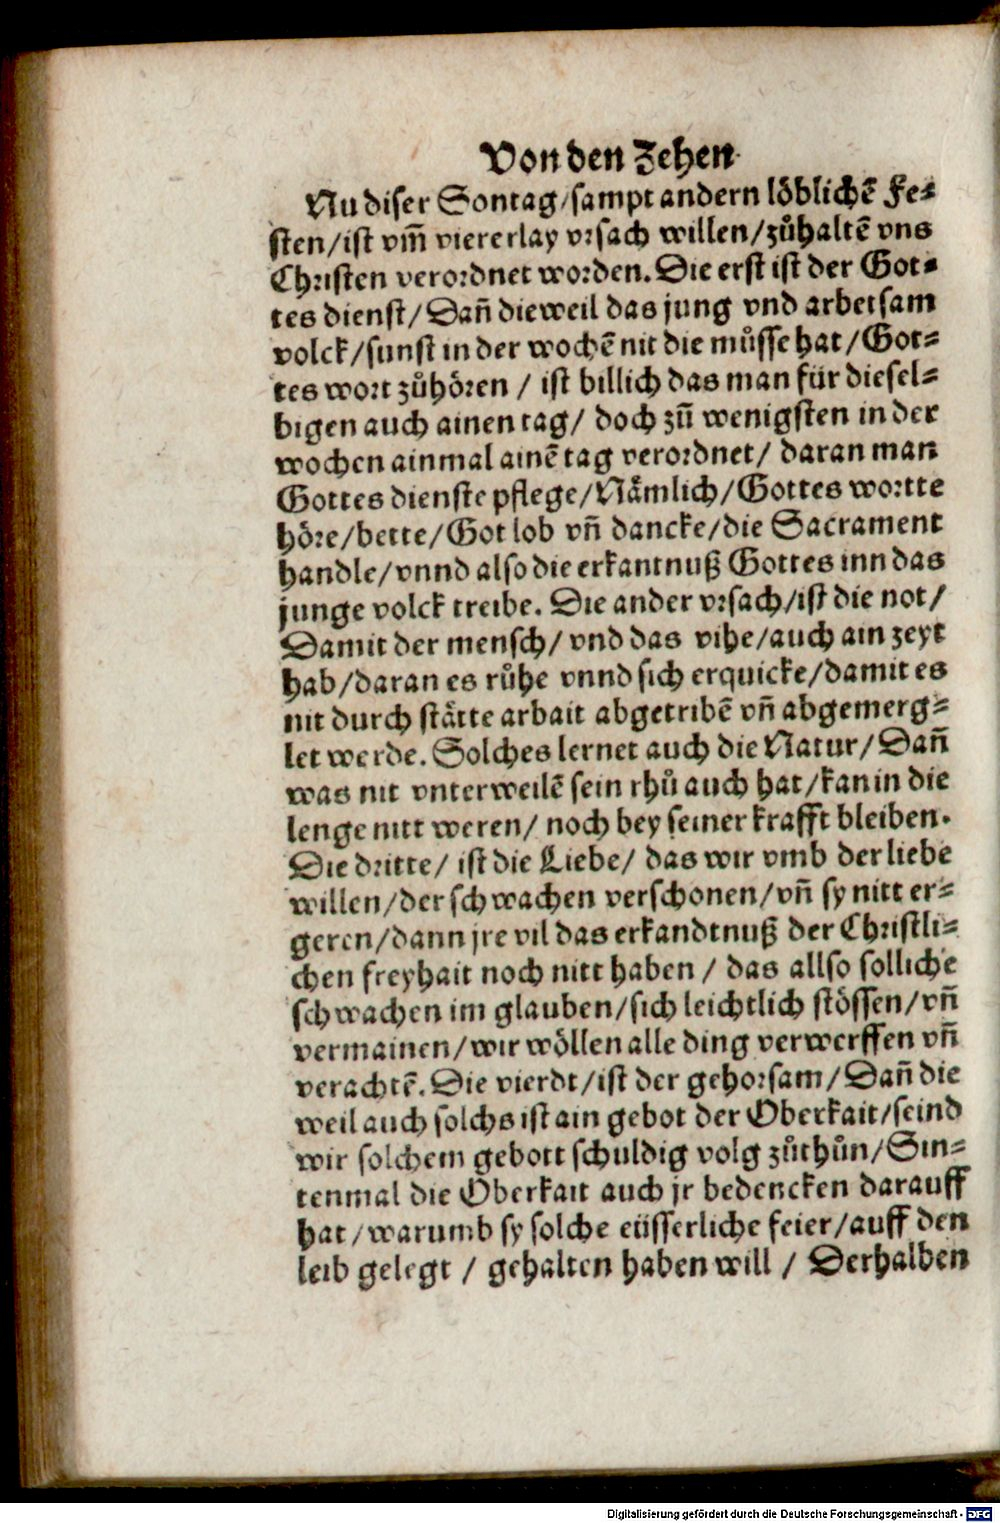 Von den Zehen
Nu diser Sontag/sampt andern löblichẽ Fe⸗
sten/ist vm̃ viererlay vrsach willen/zůhaltẽ vns
Christen verordnet worden. Die erst ist der Got⸗
tes dienst/Dañ dieweil das jung vnd arbetsam
volck/sunst in der wochẽ nit die můsse hat/Got⸗
tes wort zůhören / ist billich das man für diesel⸗
bigen auch ainen tag/ doch zũ wenigsten in der
wochen ainmal ainẽ tag verordnet/ daran man
Gottes dienste pflege/Nämlich/Gottes wortte
höre/bette/Got lob vñ dancke/die Sacrament
handle/vnnd also die erkantnuß Gottes inn das
junge volck treibe. Die ander vrsach/ist die not/
Damit der mensch/ vnd das vihe/auch ain zeyt
hab/daran es růhe vnnd sich erquicke/damit es
nit durch stätte arbait abgetribẽ vñ abgemerg⸗
let werde. Solches lernet auch die Natur/Dañ
was nit vnterweilẽ sein rhů auch hat/kan in die
lenge nitt weren/ noch bey seiner krafft bleiben.
Die dritte/ ist die Liebe/ das wir vmb der liebe
willen/der schwachen verschonen/vñ sy nitt er⸗
geren/dann jre vil das erkandtnuß der Christli⸗
chen freyhait noch nitt haben / das allso solliche
schwachen im glauben/sich leichtlich stössen/vñ
vermainen/wir wöllen alle ding verwerffen vñ
verachtẽ. Die vierdt/ist der gehorsam/Dañ die
weil auch solchs ist ain gebot der Oberkait/seind
wir solchem gebott schuldig volg zůthůn/Sin⸗
tenmal die Oberkait auch jr bedencken darauff
hat/warumb sy solche eüsserliche feier/auff den
leib gelegt / gehalten haben will / Derhalben
Digitalisierung gefördert durch die Deutsche Forschungsgemeinschaft - DFG